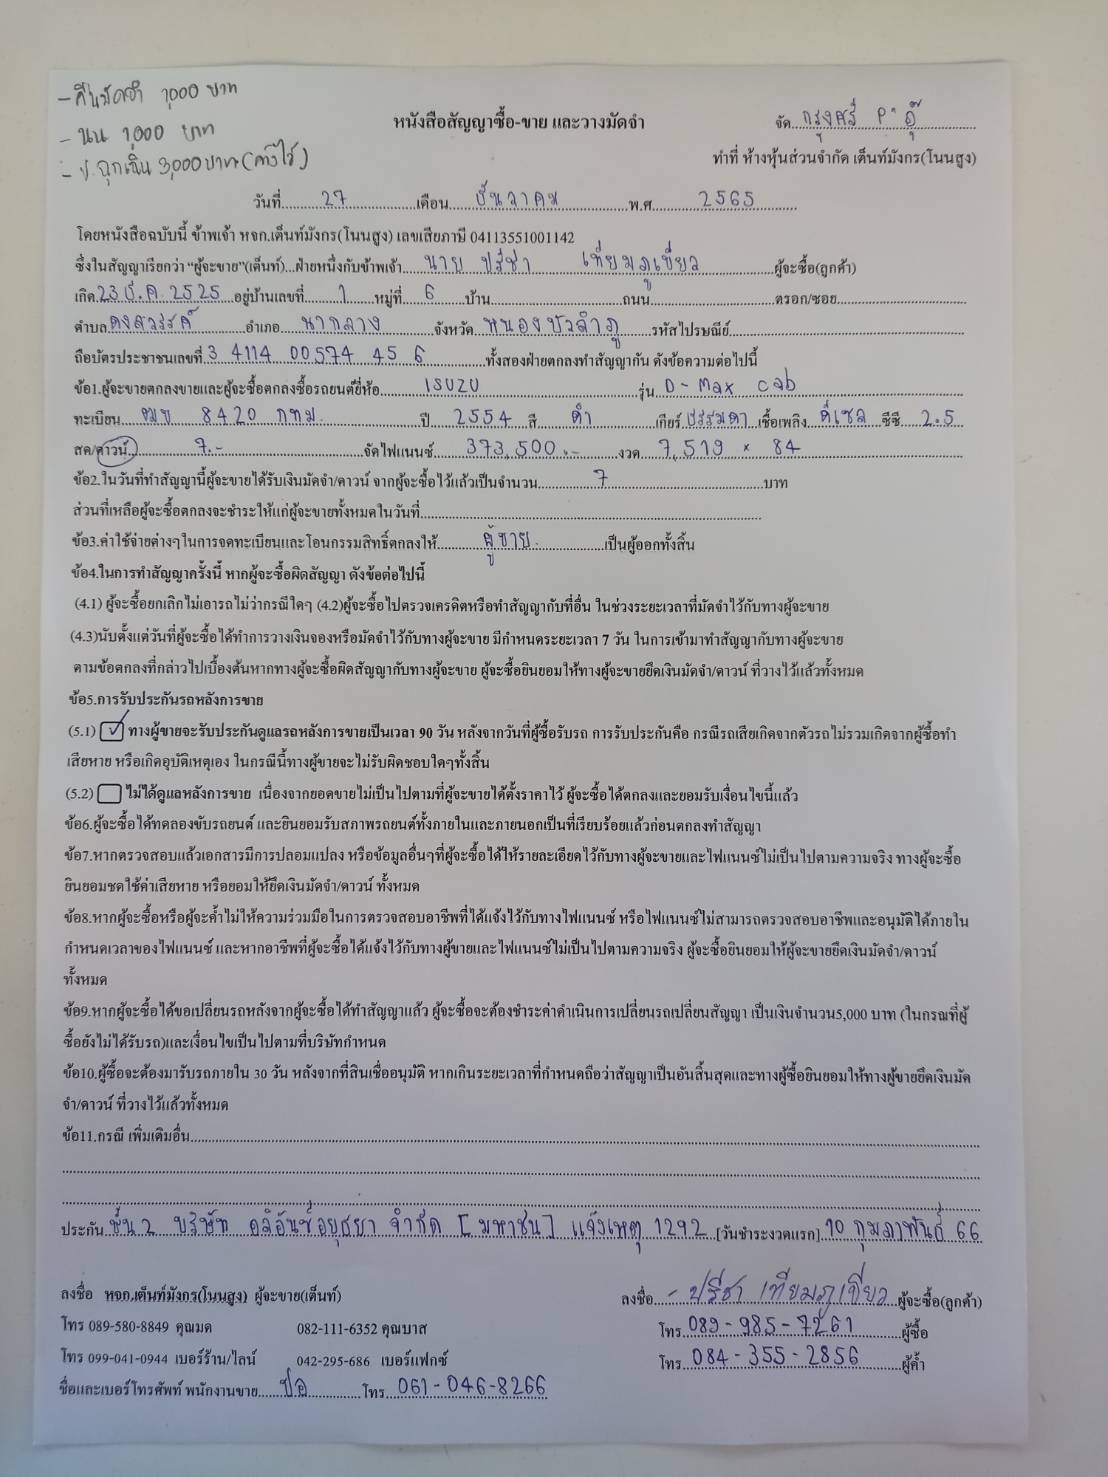 - คืนมัดจำ 1,000 บาท
- นน 1000 บาท
- ป.ฉุกเฉิน 3,000 บาท (ค้างไว้)
หนังสือสัญญาซื้อ-ขาย และวางมัดจำ
จัด กรุงศรี P'
ทำที่ ห้างหุ้นส่วนจำกัด เต็นท์มังกร(โนนสูง)
วันที่ 27 เดือน ธันวาคม พ.ศ. 2565
โดยหนังสือฉบับนี้ ข้าพเจ้า หจก.เต็นท์มังกร(โนนสูง) เลขเสียภาษี 04113551001142
ซึ่งในสัญญาเรียกว่า "ผู้จะขาย"(เต็นท์)...ฝ่ายหนึ่งกับข้าพเจ้า นาย ปรีชา เทียมภูเขียว ผู้จะซื้อ(ลูกค้า)
เกิด 23 ธ.ค. 2525 อยู่บ้านเลขที่ 1 หมู่ที่ 6 บ้าน ถนน ตรอก/ซอย
ตำบล ดงสวรรค์ อำเภอ นากลาง จังหวัด หนองบัวลำภู รหัสไปรษณีย์
ถือบัตรประชาชนเลขที่ 3 4114 00574 45 6 ทั้งสองฝ่ายตกลงทำสัญญากัน ดังข้อความต่อไปนี้
ข้อ1.ผู้จะขายตกลงขายและผู้จะซื้อตกลงซื้อรถยนต์ยี่ห้อ ISUZU รุ่น D-Max cab
ทะเบียน ฒข 8420 กทม. ปี 2554 สี ดำ เกียร์ ธรรมดา เชื้อเพลิง ดีเซล ซีซี 2.5
สด/ดาวน์ 7.- จัดไฟแนนซ์ 373,500.- งวด 7,519 × 84
ข้อ2.ในวันที่ทำสัญญานี้ผู้จะขายได้รับเงินมัดจำ/ดาวน์ จากผู้จะซื้อไว้แล้วเป็นจำนวน 7 บาท
ส่วนที่เหลือผู้จะซื้อตกลงจะชำระให้แก่ผู้จะขายทั้งหมดในวันที่
ข้อ3.ค่าใช้จ่ายต่างๆในการจดทะเบียนและโอนกรรมสิทธิ์ตกลงให้ ผู้ขาย เป็นผู้ออกทั้งสิ้น
ข้อ4.ในการทำสัญญาครั้งนี้ หากผู้จะซื้อผิดสัญญา ดังข้อต่อไปนี้
(4.1) ผู้จะซื้อยกเลิกไม่เอารถไม่ว่ากรณีใดๆ (4.2)ผู้จะซื้อไปตรวจเครดิตหรือทำสัญญากับที่อื่น ในช่วงระยะเวลาที่มัดจำไว้กับทางผู้จะขาย
(4.3)นับตั้งแต่วันที่ผู้จะซื้อได้ทำการวางเงินจองหรือมัดจำไว้กับทางผู้จะขาย มีกำหนดระยะเวลา 7 วัน ในการเข้ามาทำสัญญากับทางผู้จะขาย
ตามข้อตกลงที่กล่าวไปเบื้องต้นหากทางผู้จะซื้อผิดสัญญากับทางผู้จะขาย ผู้จะซื้อยินยอมให้ทางผู้จะขายยึดเงินมัดจำ/ดาวน์ ที่วางไว้แล้วทั้งหมด
ข้อ5.การรับประกันรถหลังการขาย
(5.1) ✓ ทางผู้ขายจะรับประกันดูแลรถหลังการขายเป็นเวลา 90 วัน หลังจากวันที่ผู้ซื้อรับรถ การรับประกันคือ กรณีรถเสียเกิดจากตัวรถไม่รวมเกิดจากผู้ซื้อทำ
เสียหาย หรือเกิดอุบัติเหตุเอง ในกรณีนี้ทางผู้ขายจะไม่รับผิดชอบใดๆทั้งสิ้น
(5.2) ไม่ได้ดูแลหลังการขาย เนื่องจากยอดขายไม่เป็นไปตามที่ผู้จะขายได้ตั้งราคาไว้ ผู้จะซื้อได้ตกลงและยอมรับเงื่อนไขนี้แล้ว
ข้อ6.ผู้จะซื้อได้ทดลองขับรถยนต์ และยินยอมรับสภาพรถยนต์ทั้งภายในและภายนอกเป็นที่เรียบร้อยแล้วก่อนตกลงทำสัญญา
ข้อ7.หากตรวจสอบแล้วเอกสารมีการปลอมแปลง หรือข้อมูลอื่นๆที่ผู้จะซื้อได้ให้รายละเอียดไว้กับทางผู้จะขายและไฟแนนซ์ไม่เป็นไปตามความจริง ทางผู้จะซื้อ
ยินยอมชดใช้ค่าเสียหาย หรือยอมให้ยึดเงินมัดจำ/ดาวน์ ทั้งหมด
ข้อ8.หากผู้จะซื้อหรือผู้จะค้ำไม่ให้ความร่วมมือในการตรวจสอบอาชีพที่ได้แจ้งไว้กับทางไฟแนนซ์ หรือไฟแนนซ์ไม่สามารถตรวจสอบอาชีพและอนุมัติได้ภายใน
กำหนดเวลาของไฟแนนซ์ และหากอาชีพที่ผู้จะซื้อได้แจ้งไว้กับทางผู้ขายและไฟแนนซ์ไม่เป็นไปตามความจริง ผู้จะซื้อยินยอมให้ผู้จะขายยึดเงินมัดจำ/ดาวน์
ทั้งหมด
ข้อ9.หากผู้จะซื้อได้ขอเปลี่ยนรถหลังจากผู้จะซื้อได้ทำสัญญาแล้ว ผู้จะซื้อจะต้องชำระค่าดำเนินการเปลี่ยนรถเปลี่ยนสัญญา เป็นเงินจำนวน5,000 บาท (ในกรณที่ผู้
ซื้อยังไม่ได้รับรถ)และเงื่อนไขเป็นไปตามที่บริษัทกำหนด
ข้อ10.ผู้ซื้อจะต้องมารับรถภายใน 30 วัน หลังจากที่สินเชื่ออนุมัติ หากเกินระยะเวลาที่กำหนดถือว่าสัญญาเป็นอันสิ้นสุดและทางผู้ซื้อยินยอมให้ทางผู้ขายยึดเงินมัด
จำ/ดาวน์ ที่วางไว้แล้วทั้งหมด
ข้อ11.กรณี เพิ่มเติมอื่น
ประกัน ชั้น 2 บริษัท อลิอันซ์อยุธยา จำกัด [มหาชน] แจ้งเหตุ 1292 [วันชำระงวดแรก] 10 กุมภาพันธ์ 66
ลงชื่อ หจก.เต็นท์มังกร(โนนสูง) ผู้จะขาย(เต็นท์)
ลงชื่อ ปรีชา เทียมภูเขียว ผู้จะซื้อ(ลูกค้า)
โทร 089-580-8849 คุณมด 082-111-6352 คุณบาส
โทร 089-985-7261 ผู้ซื้อ
โทร 099-041-0944 เบอร์ร้าน/ไลน์ 042-295-686 เบอร์แฟกซ์
โทร 084-355-2856 ผู้ค้ำ
ชื่อและเบอร์โทรศัพท์ พนักงานขาย ปอ โทร 061-046-8266